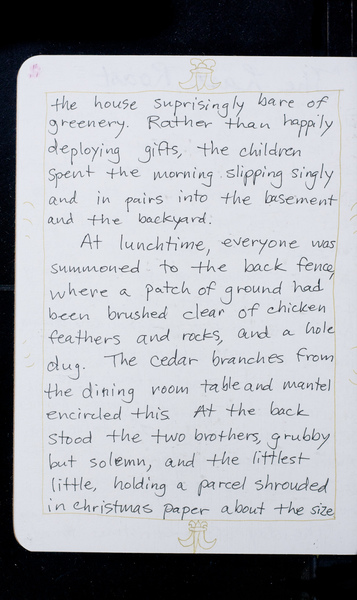 the house suprisingly bare of
greenery. Rather than happily
deploying gifts, the children
spent the morning slipping singly
and in pairs into the basement
and the backyard.
At lunchtime, everyone was
summoned to the back fence,
where a patch of ground had
been brushed clear of chicken
feathers and rocks, and a hole
dug. The cedar branches from
the dining room table and mantel
encircled this. At the back
stood the two brothers, grubby
but solemn, and the littlest
little, holding a parcel shrouded
in christmas paper about the size